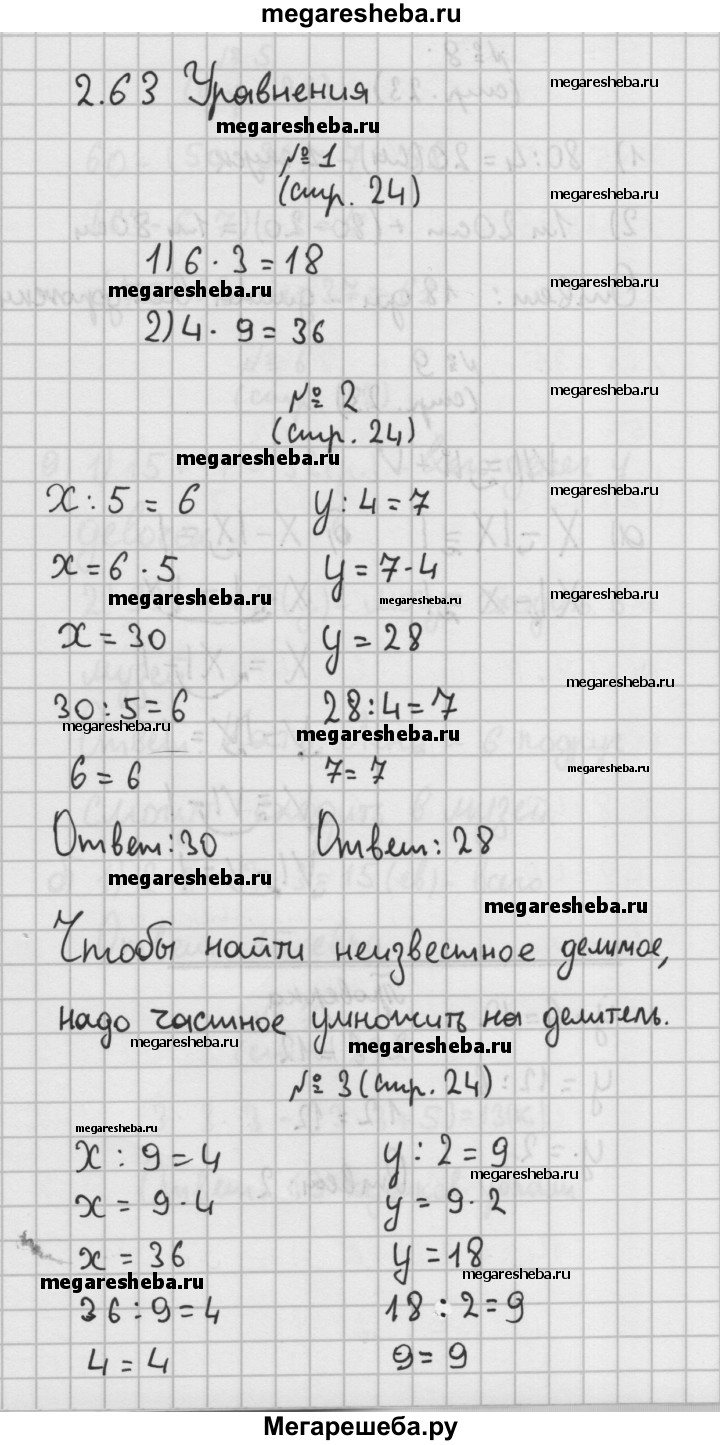 megaresheba.ru
2.63 Уравнения
megaresheba.ru
megaresheba.ru
№ 1
(стр. 24)
megaresheba.ru
1) 6 · 3 = 18
megaresheba.ru
megaresheba.ru
2) 4 · 9 = 36
№ 2
megaresheba.ru
(стр. 24)
megaresheba.ru
x : 5 = 6 y : 4 = 7
megaresheba.ru
x = 6 · 5 y = 7 · 4
megaresheba.ru megaresheba.ru megaresheba.ru
x = 30 y = 28
megaresheba.ru
30 : 5 = 6 28 : 4 = 7
megaresheba.ru megaresheba.ru
6 = 6 7 = 7
megaresheba.ru
Ответ: 30 Ответ: 28
megaresheba.ru
megaresheba.ru
Чтобы найти неизвестное делимое,
надо частное умножить на делитель.
megaresheba.ru megaresheba.ru
№ 3 (стр. 24)
megaresheba.ru
x : 9 = 4 y : 2 = 9
megaresheba.ru
x = 9 · 4 y = 9 · 2
x = 36 y = 18
megaresheba.ru megaresheba.ru
36 : 9 = 4 18 : 2 = 9
4 = 4 9 = 9
Мегарешеба.ру